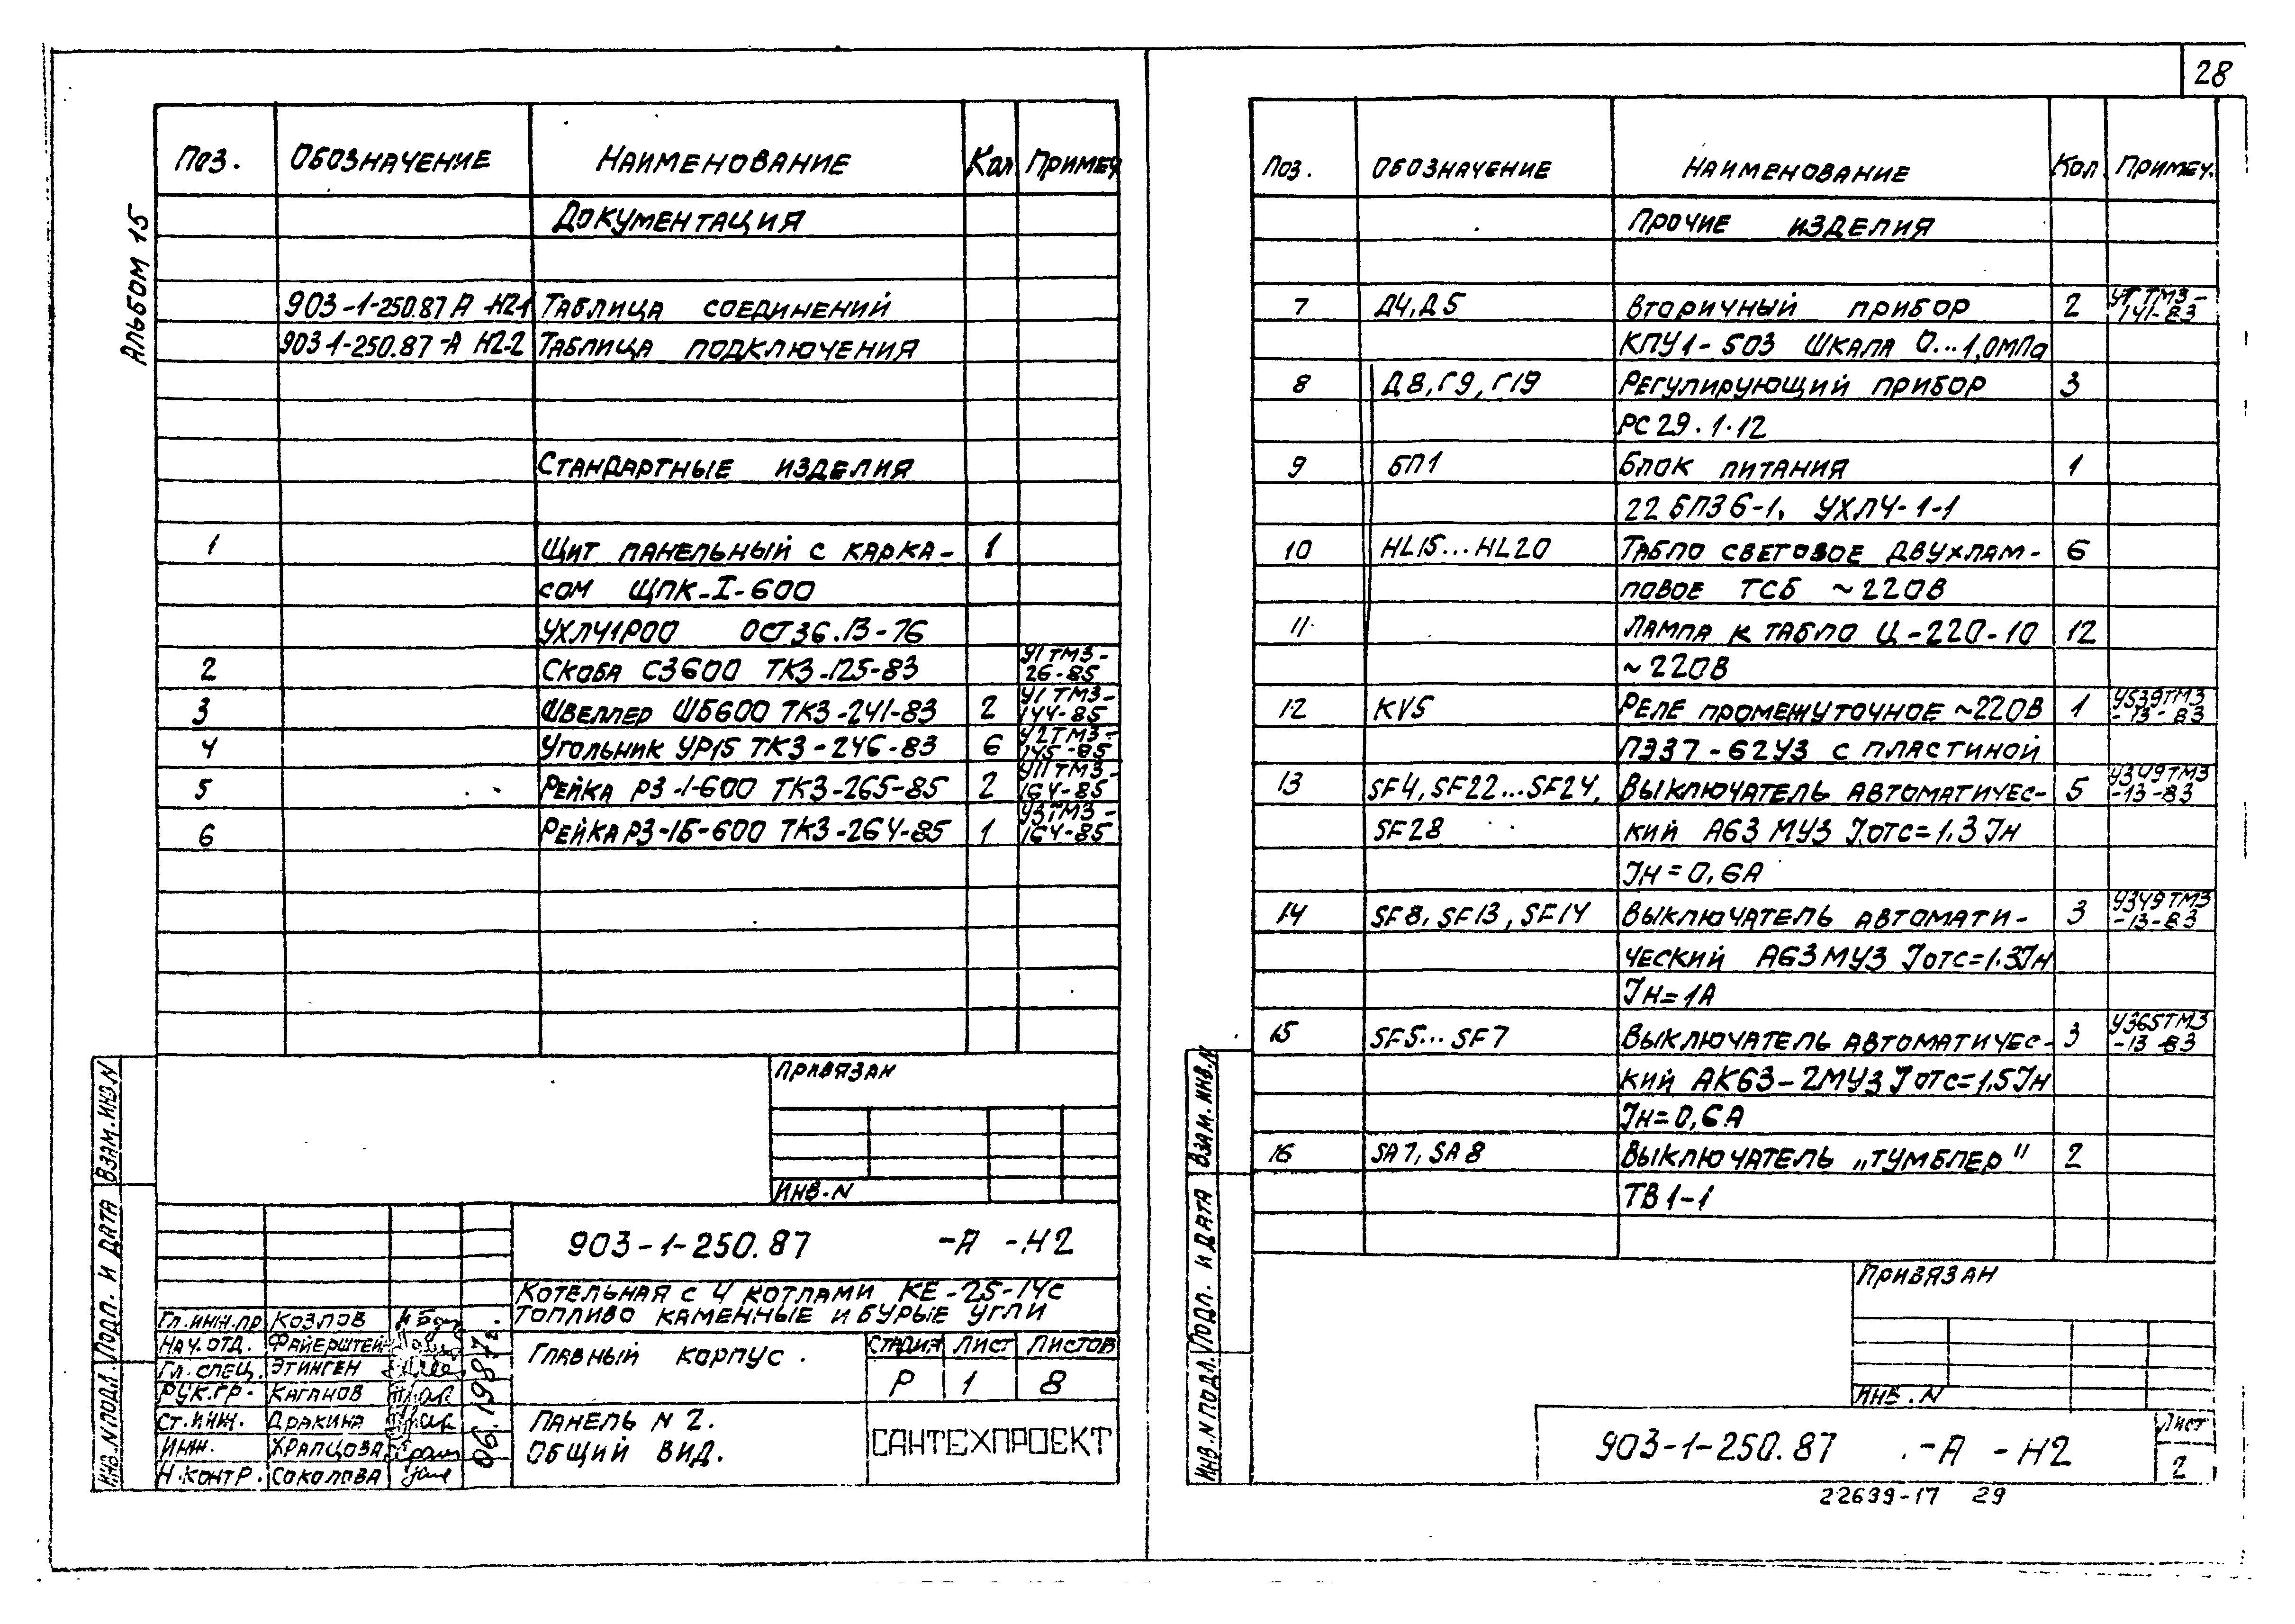 28
Альбом 15
Поз. Обозначение Наименование Кол Примеч
Документация
903-1-250.87 А -Н2-1 Таблица соединений
903-1-250.87-А Н2-2 Таблица подключения
Стандартные изделия
1 Щит панельный с карка- 1
сом ЩПК-I-600
УХЛЧ1Р00 ОСТ36.13-76
У1 ТМ3-
2 Скоба С3600 ТК3-125-83 26-85
У1 ТМ3-
3 Швеллер ШБ600 ТК3-241-83 2 144-85
У2ТМ3-
4 Угольник УР15 ТК3-246-83 6 145-85
У11 ТМ3-
5 Рейка Р3-1-600 ТК3-265-85 2 164-85
У3ТМ3-
6 Рейка Р3-1Б-600 ТК3-264-85 1 164-85
Привязан
Инв.N
903-1-250.87 -А -Н2
Котельная с 4 котлами КЕ-25-14С
топливо каменные и бурые угли
Гл.инж.пр Козлов
Нач.отд. Файерштейн
Гл.спец. Этинген
Рук.гр. Каганов
Ст.инж. Дракина
Инж. Храпцова
Н.контр. Соколова
06.1987г.
Главный корпус.
Стадия Лист Листов
Р 1 8
Панель N 2.
Общий вид.
САНТЕХПРОЕКТ
Взам.инв.N
Подп. и дата
Инв.N подл.
Поз. Обозначение Наименование Кол. Примеч.
Прочие изделия
7 Д4,Д5 Вторичный прибор 2 УТ ТМ3-
141-83
КПУ1-503 шкала 0...1,0МПа
8 Д8,Г9,Г19 Регулирующий прибор 3
РС29.1.12
9 БП1 Блок питания 1
22БП36-1, УХЛЧ-1-1
10 HL15...HL20 Табло световое двухлам- 6
повое ТСБ ~220В
11 Лампа к табло Ц-220-10 12
~220В
12 KV5 Реле промежуточное ~220В 1 У539ТМ3
-13-83
ПЭ37-62У3 с пластиной
13 SF4,SF22...SF24, Выключатель автоматичес- 5 У349ТМ3
-13-83
SF28 кий А63 МУ3 Iотс=1.3Iн
Iн=0,6А
14 SF8,SF13,SF14 Выключатель автомати- 3 У349ТМ3
-13-83
ческий А63МУ3 Iотс=1.3Iн
Iн=1А
15 SF5...SF7 Выключатель автоматичес- 3 У365ТМ3
-13-83
кий АК63-2МУ3 Iотс=1.5Iн
Iн=0,6А
16 SA7,SA8 Выключатель „тумблер" 2
ТВ1-1
Привязан
Инв.N
903-1-250.87 -А -Н2
Лист
2
Взам.инв.N
Подп. и дата
Инв.N подл.
22639-17 29